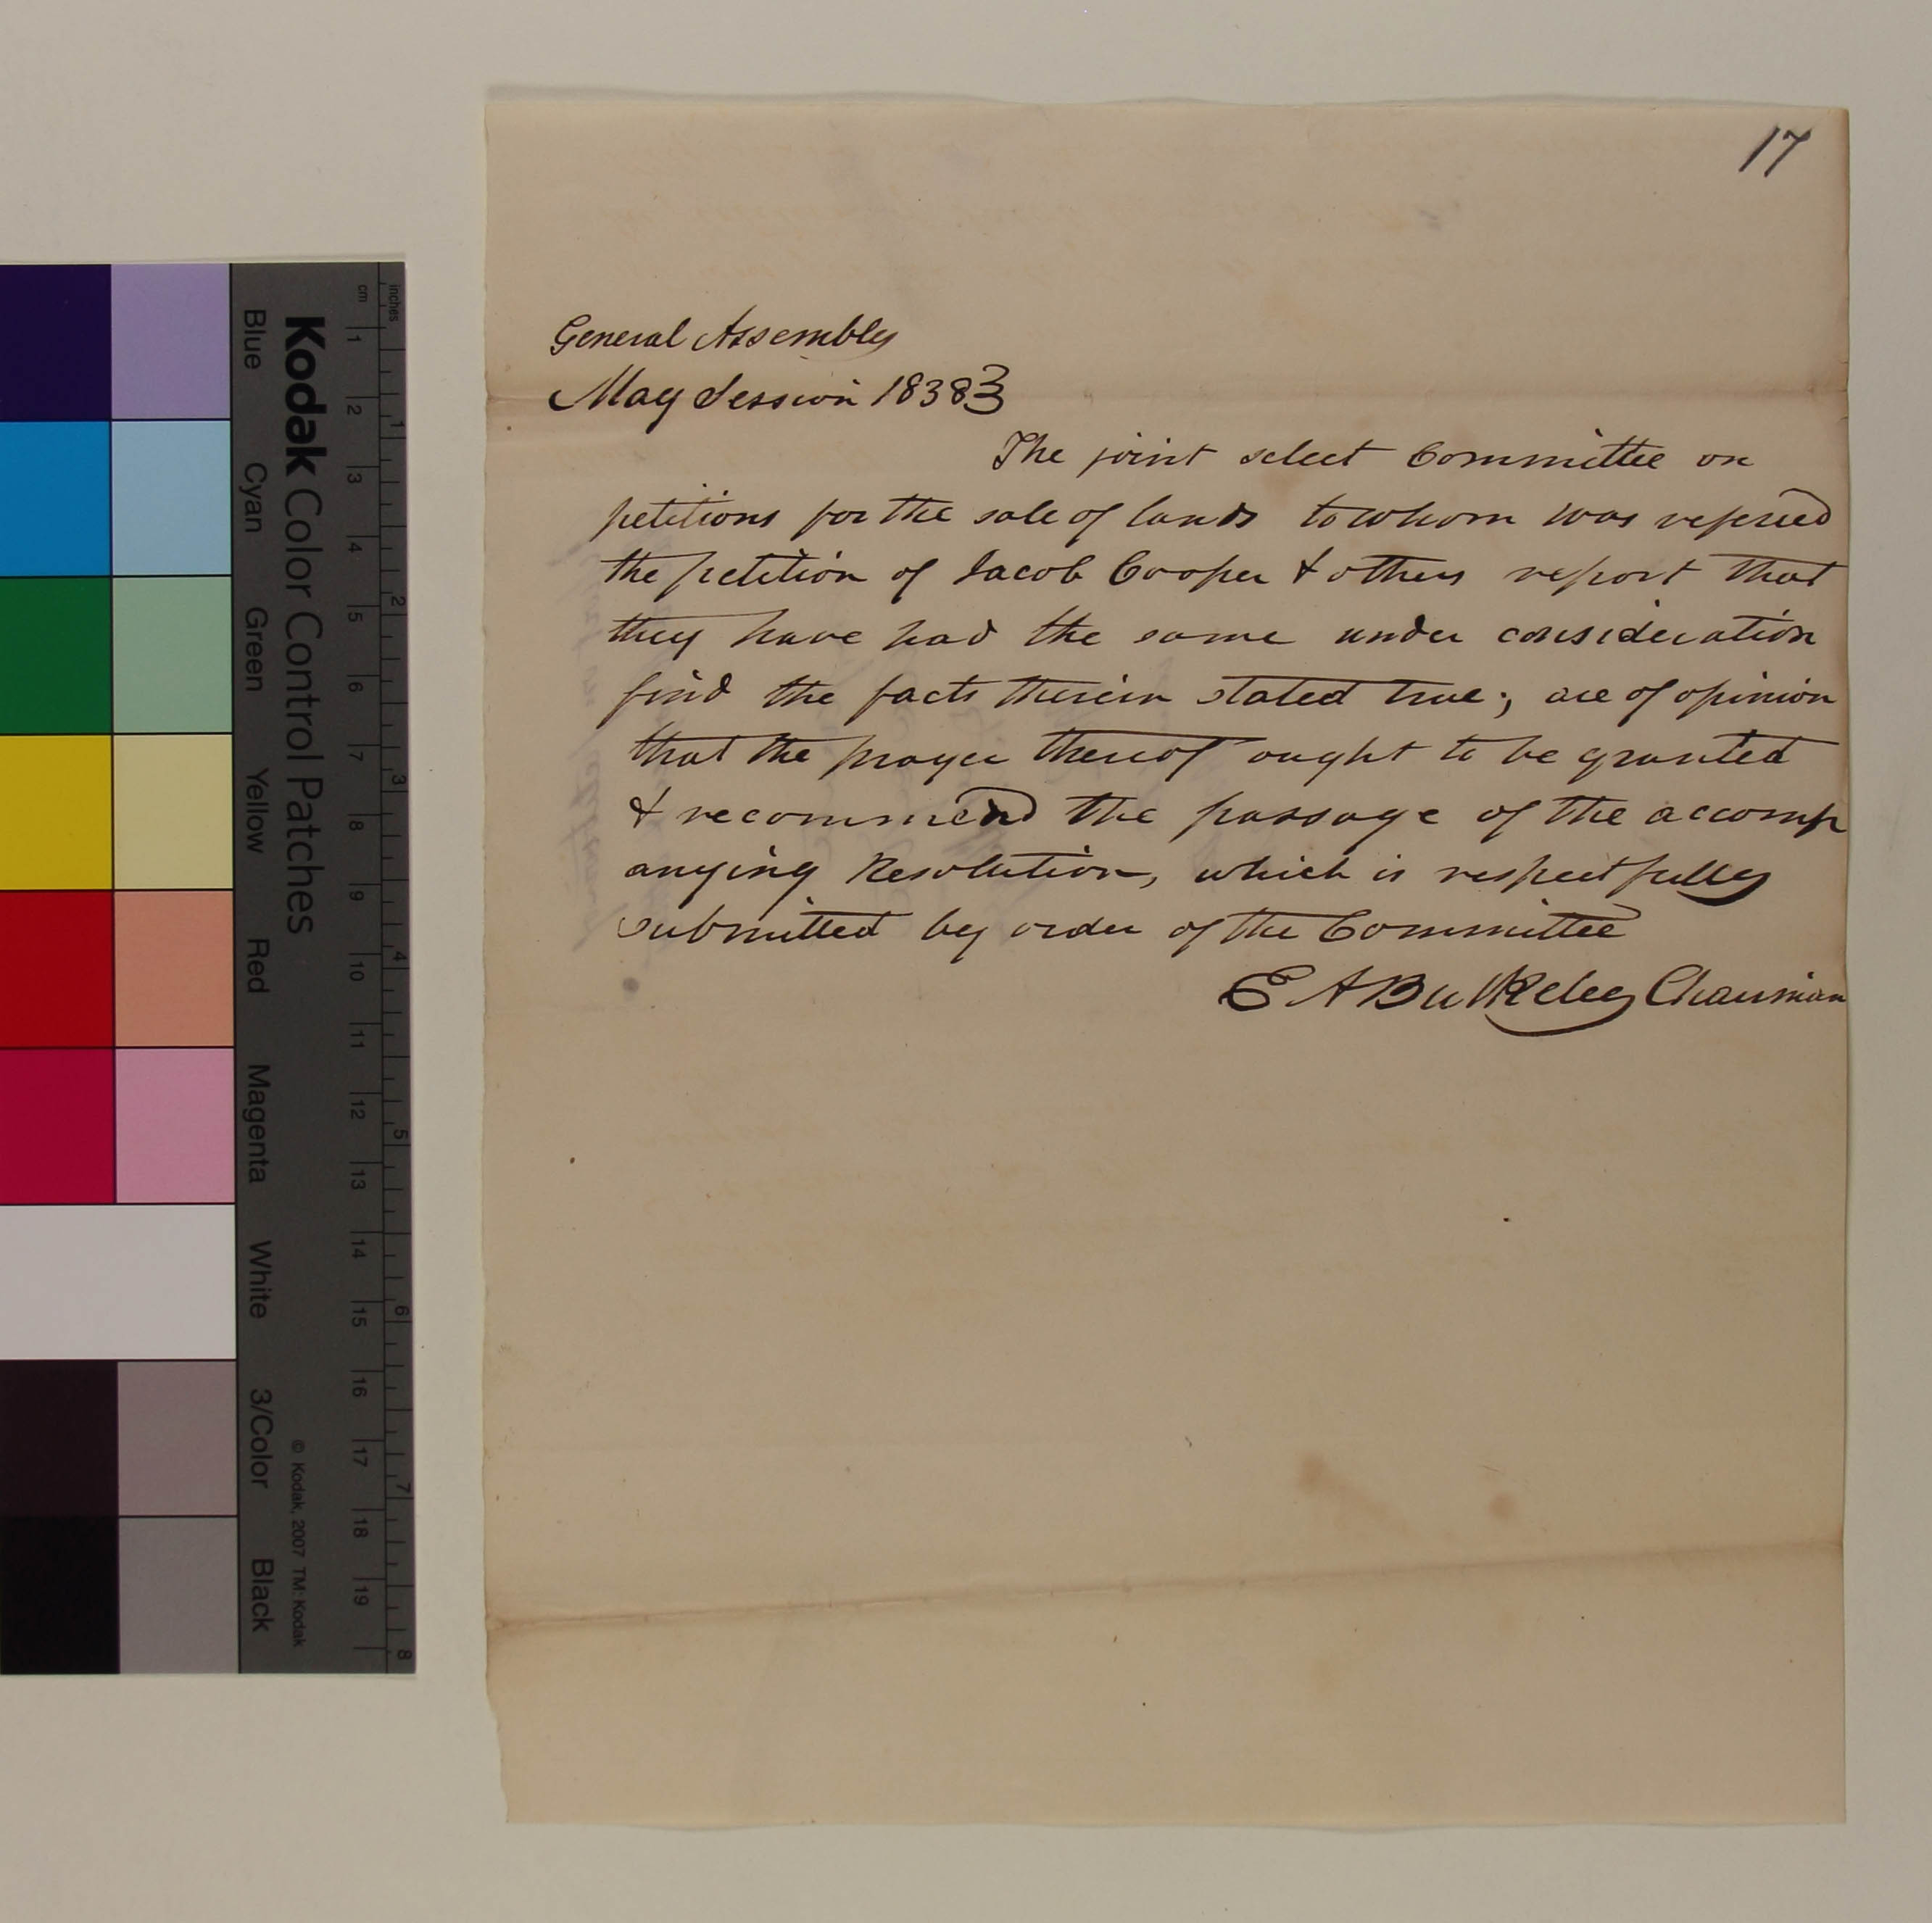 17
General Assembly
May Session 1838 }
The joint select Committee on
petitions for the sale of lands to whom was referred
the petition of Jacob Cooper & others report that
they have had the same under consideration
find the facts therein stated true; are of opinion
that the prayer thereof ought to be granted
& recommend the passage of the accomp
anying Resolution, which is respectfully
submitted by order of the Committee
E A Bulkeley Chairman
Kodak Color Control Patches
Blue Cyan Green Yellow Red Magenta White 3/Color Black
© Kodak, 2007 TM: Kodak
cm 1 2 3 4 5 6 7 8 9 10 11 12 13 14 15 16 17 18 19
inches 1 2 3 4 5 6 7 8